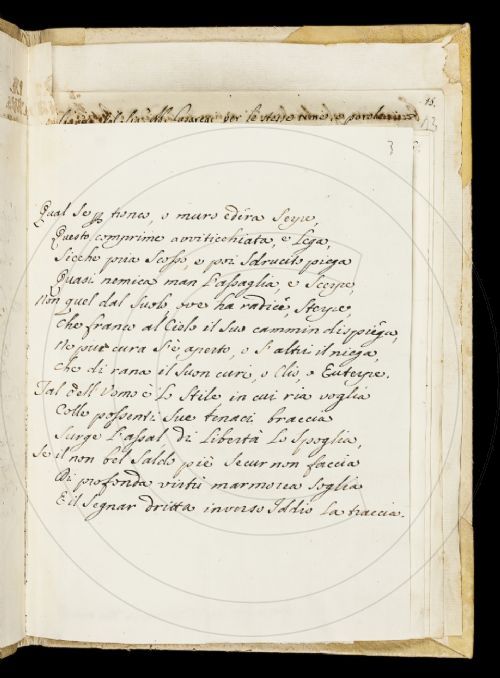 15.
13
3
per le stesse rime, e parole
Qual se tronco, o muro edera serpe,
Questo comprime avviticchiata, e lega,
Sicche pria scosso, e poi sdrucito piega
Quasi nemica man l'assaglia, e scerpe,
Non quel dal suolo ove ha radice, sterpe,
Che franco al Cielo il suo cammin dispiega,
Ne pur cura s'è aperto, o s'altri il niega,
Che di rana il suon curi, o Clio, o Euterpe.
Tal dell Uomo è lo stile in cui ria voglia
Colle possenti sue tenaci braccia
Surge l'assal di libertà lo spoglia,
Se il non bel saldo piè secur non faccia
Di profonda virtù marmorea soglia
E il segnar dritta inverso Iddio la traccia.